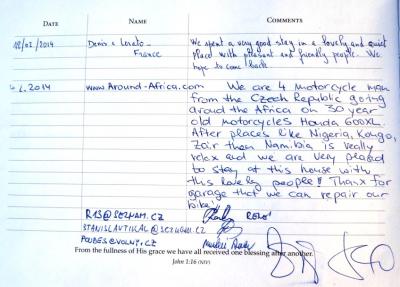 DATE NAME COMMENTS
12/02/2014 Denis & Loreto - We spent a very good stay in a lovely and quiet
France place with pleasant and friendly people. We
hope to come back
4.2.2014 www.Around-Africa.com We are 4 Motorcycle man
from the Czech Republic going
aroud the Africa on 30 year
old motorcycles Honda 600XL.
After places like Nigeria, Kongo,
Zair then Namibia is really
relax and we are very pleased
to stay at this house with
this lovely people! Thanx for
garage that we can repair our
bike!
R13@SEZNAM.CZ RENÉ
STANISLAVTIKAL@SEZNAM.CZ
POUBES@VOLNY.CZ
From the fullness of His grace we have all received one blessing after another.
John 1:16 (NIV)